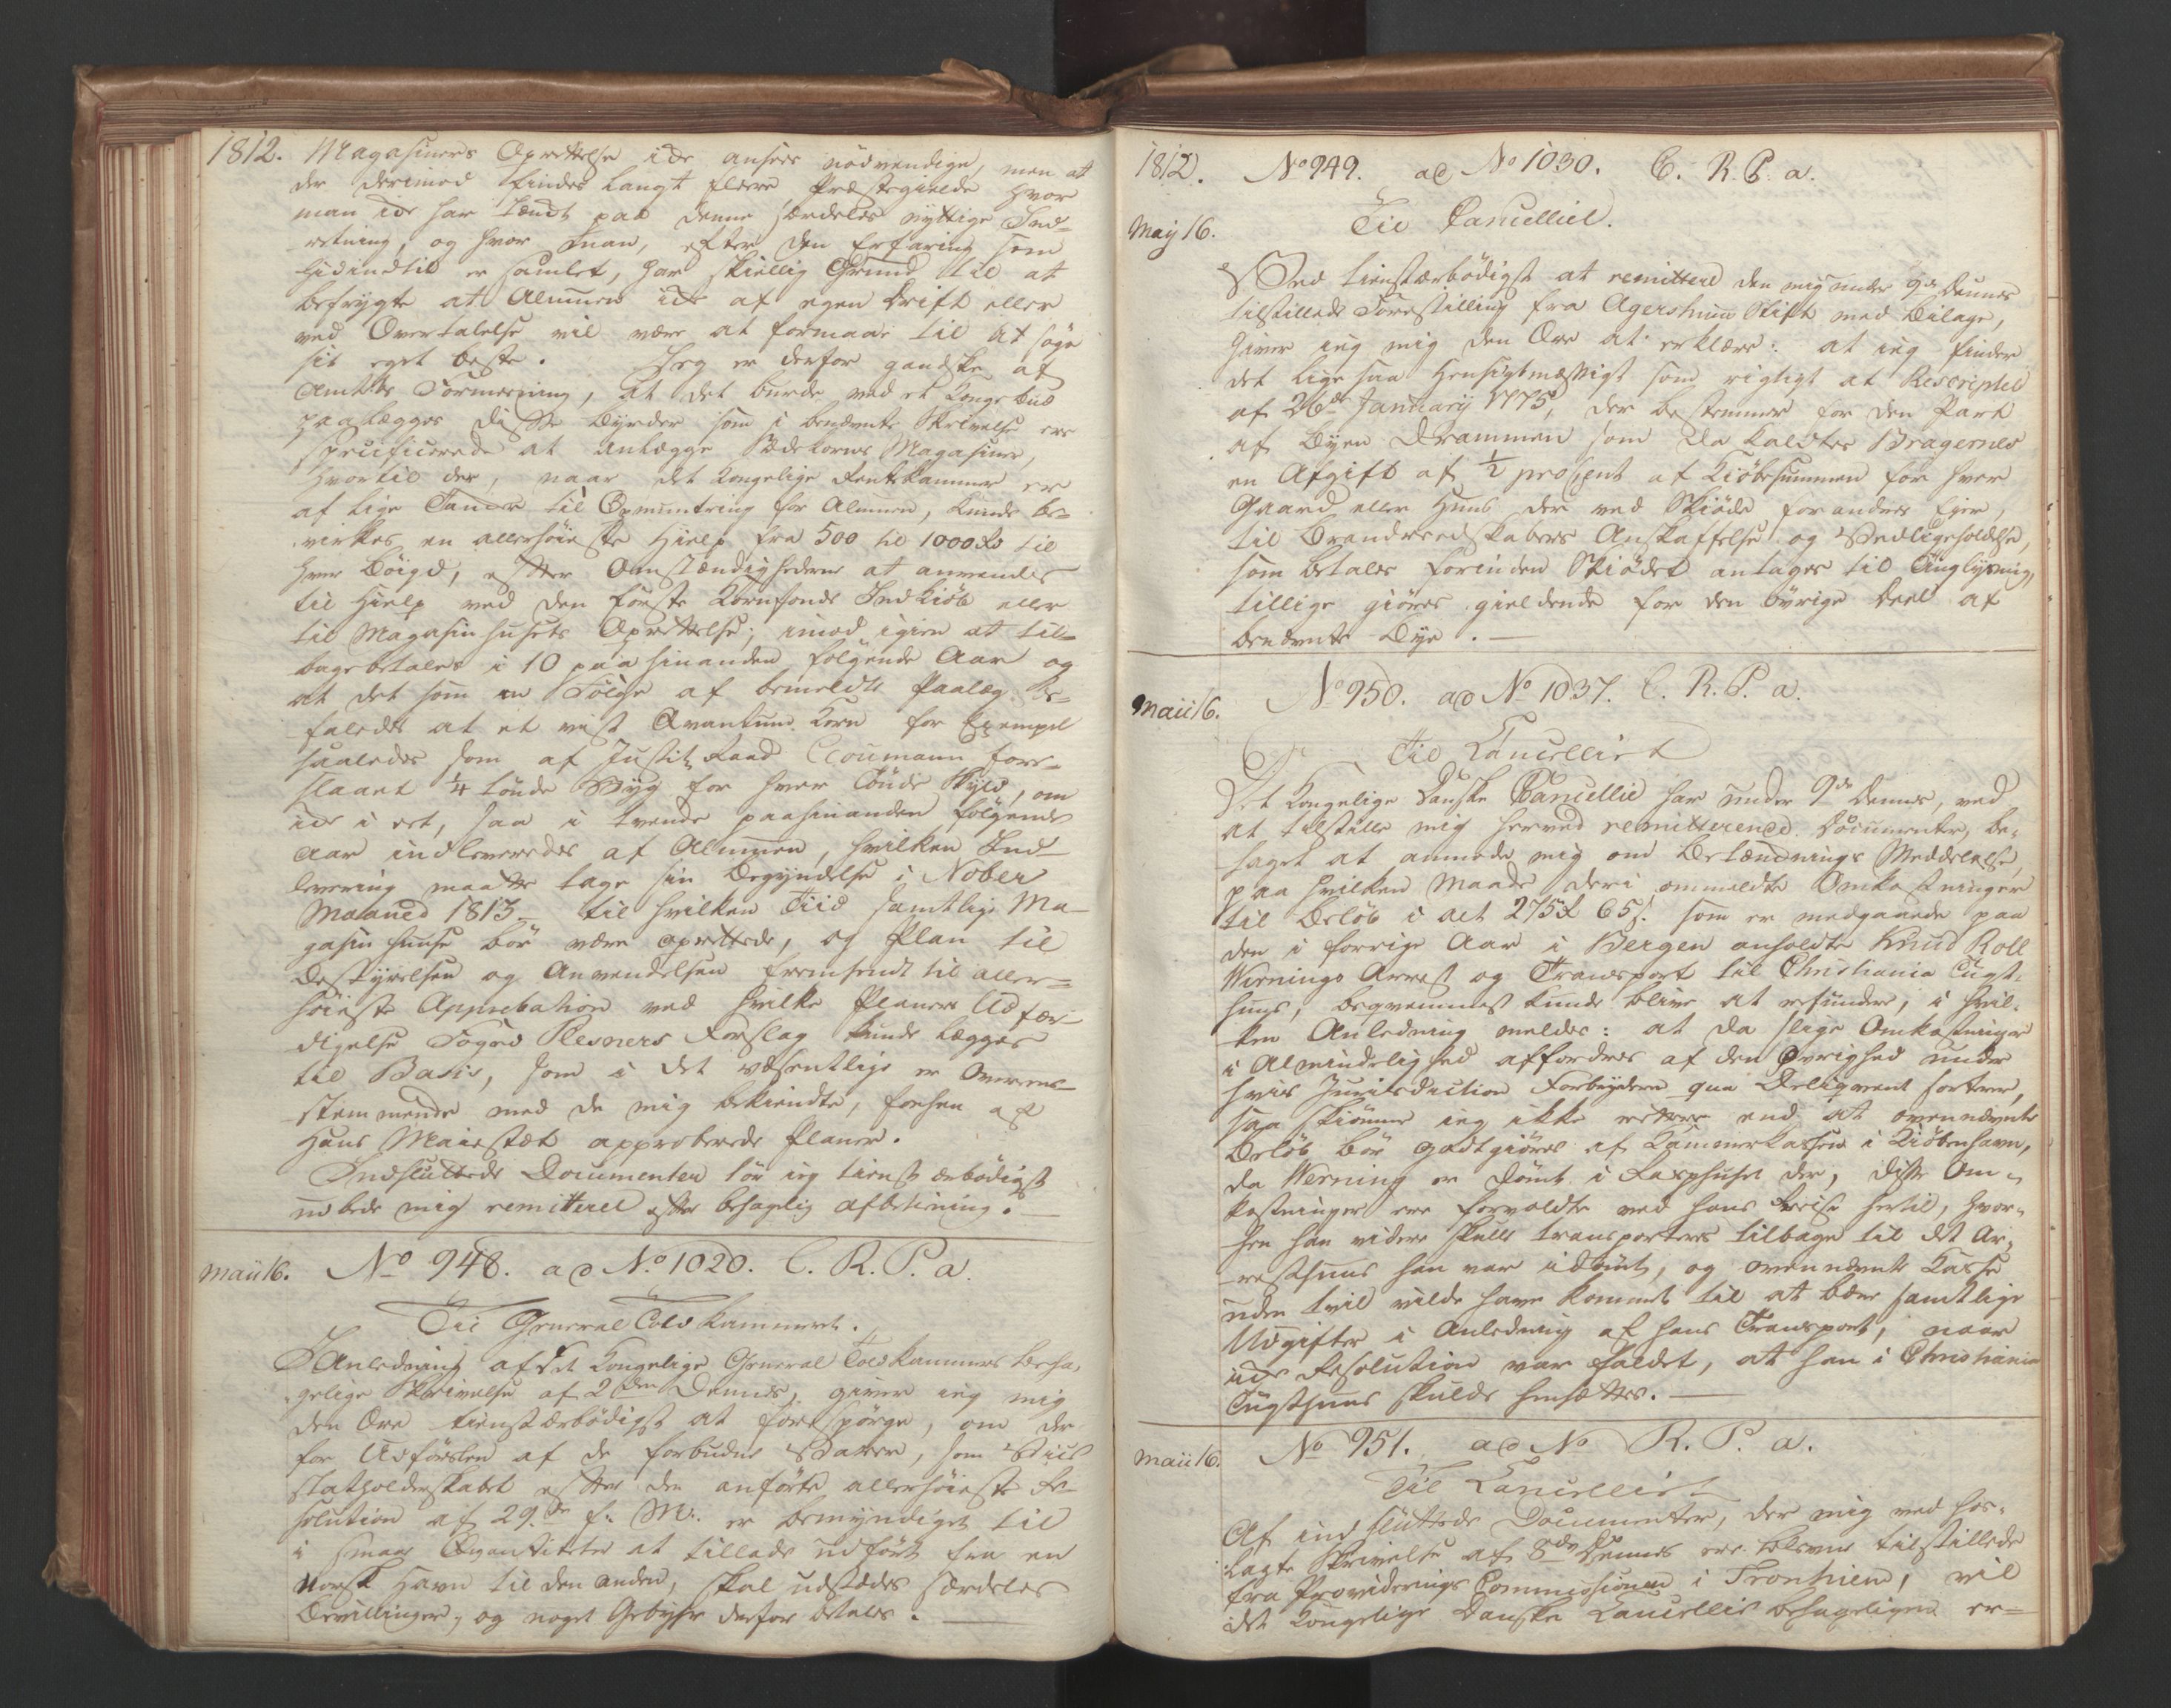 1812.
Magasiners Oprettelse ide ansees nødvendige, men at
der derimod findes langt flere Præstegielde hvor
man ide har tænkt paa denne særdeles nyttige Ind-
retning, og hvor man, efter den Erfaring som
hidindtil er samlet, har skiellig Grund til at
befrygte at Almuen ide af egen Drift eller
ved Overtalelse vil være at formaae til at søge
sit eget beste. Jeg er derfor gandske af
Amtets Formeening, at det burde ved et Konge bud
paalægges disse Bygder som i bendvnte Skrivelse ere
specificerede at anlægge Sædekorns Magasiner,
hvortil der, naar det Kongelige Rentekammer er
af lige Tanker til Opmuntring for Almuen, kunde be-
virkes en allerhøieste Hielp fra 500 til 1000 Rd til
hver Bøigd, efter Omstændighederne at anvendes
til Hielp ved den første Kornfonds Indkiøb eller
til Magasinhusets Oprettelse; imod igien at til-
bagebetales i 10 paa hinanden følgende Aar og
at det som en Følge af bemeldte Paalæg be-
faledes at et vist Qvantum Korn for Exempel
saaledes som af Justitz Raad Cloumann fore-
slaaet 1/4 tønde Byg for hver Tønde Skyld, om
ide i eet, saa i tvende paahinanden følgende
Aar indleveredes af Almuen, hvilken Ind-
levering maatte tage sin Begyndelse i Nober
Maaned 1813 - til hvilken Tiid samtlige Ma-
gasin huuse bør være oprettede, og Plan til
Bestyrelsen og Anvendelsen fremsendt til aller-
høieste Approbation ved hvilke Planers Udfær-
digelse Foged Plesners Forslag kunde lægges
til Basis, som i det væsentlige er Overens-
stemmende med de mig bekiendte, forhen af
Hans Maiestæt approberede Planer.
Indsluttede Documenter tør jeg tienst ærbødigst
udbede mig remitteret efter behagelig Afbetiening.
Maii 16.
No 948. ad No. 1020. C. R. P. a.
Til General Told Kammeret.
I Anledning af det Kongelige General Toldkammers beha-
gelige Skrivelse af 2den Dennes, giver jeg mig
den Ære tienstærbødigst at forespørge, om der
for Udførslen af de forbudne Varer, som Vice
statholderskabet efter den anførte allerhøieste Re-
solution af 29de f. M. er bemyndiget til
i smaa Qvantiteter at tillade udført fra en
Norsk Havn til den anden, skal udstædes særdeles
Bevillinger, og noget Gebyhr derfor betales.
1812.
No 949. ad No 1030. C. R. P. a.
May 16.
Til Cancelliet.
Ved tienstærbødigst at remittere den mig under 9de dennes
tilstillede Forestilling fra Agershuus Stift med Bilage,
haver jeg mig den Ære at erklære: at jeg finder
det lige saa Hensigtmæssigt som rigtigt at Rescriptet
af 26de January 1775, der bestemmer for den Part
af Byen Drammen som da kaldtes Bragernes
en Afgift af 1/2 procent af Kiøbesummen for hver
Gaard eller Huus der ved Skiøde forandrer Eier,
til Brandredskabers Anskaffelse og Vedligeholdelse,
som betales forinden Skiødet antages til Tinglysning,
tillige giøres gieldende for den øvrige Deel af
bendvnte Bye. —
Maii 16.
No 950. ad No 1037. C. R. P. a.
Til Cancelliet
Det Kongelige Danske Cancellie har under 9de dennes, ved
at tilstille mig herved remitterende Documenter, be-
haget at anmode mig om Betænknings Meddelelse,
paa hvilken Maade deri ommeldte Omkostninger
til Beløb i alt 275 Rd 65 s. som er medgaaede paa
den i forrige Aar i Bergen anholdte Knud Roll
Wernings Arrest og Transport til Christiania Tugt-
huus, beqvemmest kunde blive at refundere, i hvil-
ken Anledning meldes: at da slige Omkostninger
i Almindelighed affordres af den Øvrighed under
hvis Jurisdiction Forbryderen qua Deliqvent sorterer,
saa skiønner jeg ikke rettere end at ovennævnte
Beløb bør godtgiøres af Kæmmerkassen i Kiøbenhavn,
da Werning er dømt i Rasphuset der, disse Om-
kostninger ere forvoldte ved hans Reise hertil, hvor-
hen han videre skulle transporteres tilbage til det Ar-
resthuus han var udbrudt, og ovennævnte Kasse
uden tvil vilde have kommet til at bære samtlige
Udgifter i Anledning af hans Transport, naar
ide Resolution var faldet, at han i Christiania
Tugthuus skulde hensættes. —
Maii 16.
No 951. ad No R. P. a.
Til Cancelliet
Af indsluttede Documenter, der mig ved hos-
lagte Skrivelse af 8de Dennes ere blevne tilstillede
fra Provideringscommissionen i Tronhiem, vil
det Kongelige Danske Cancellie behageligen er-